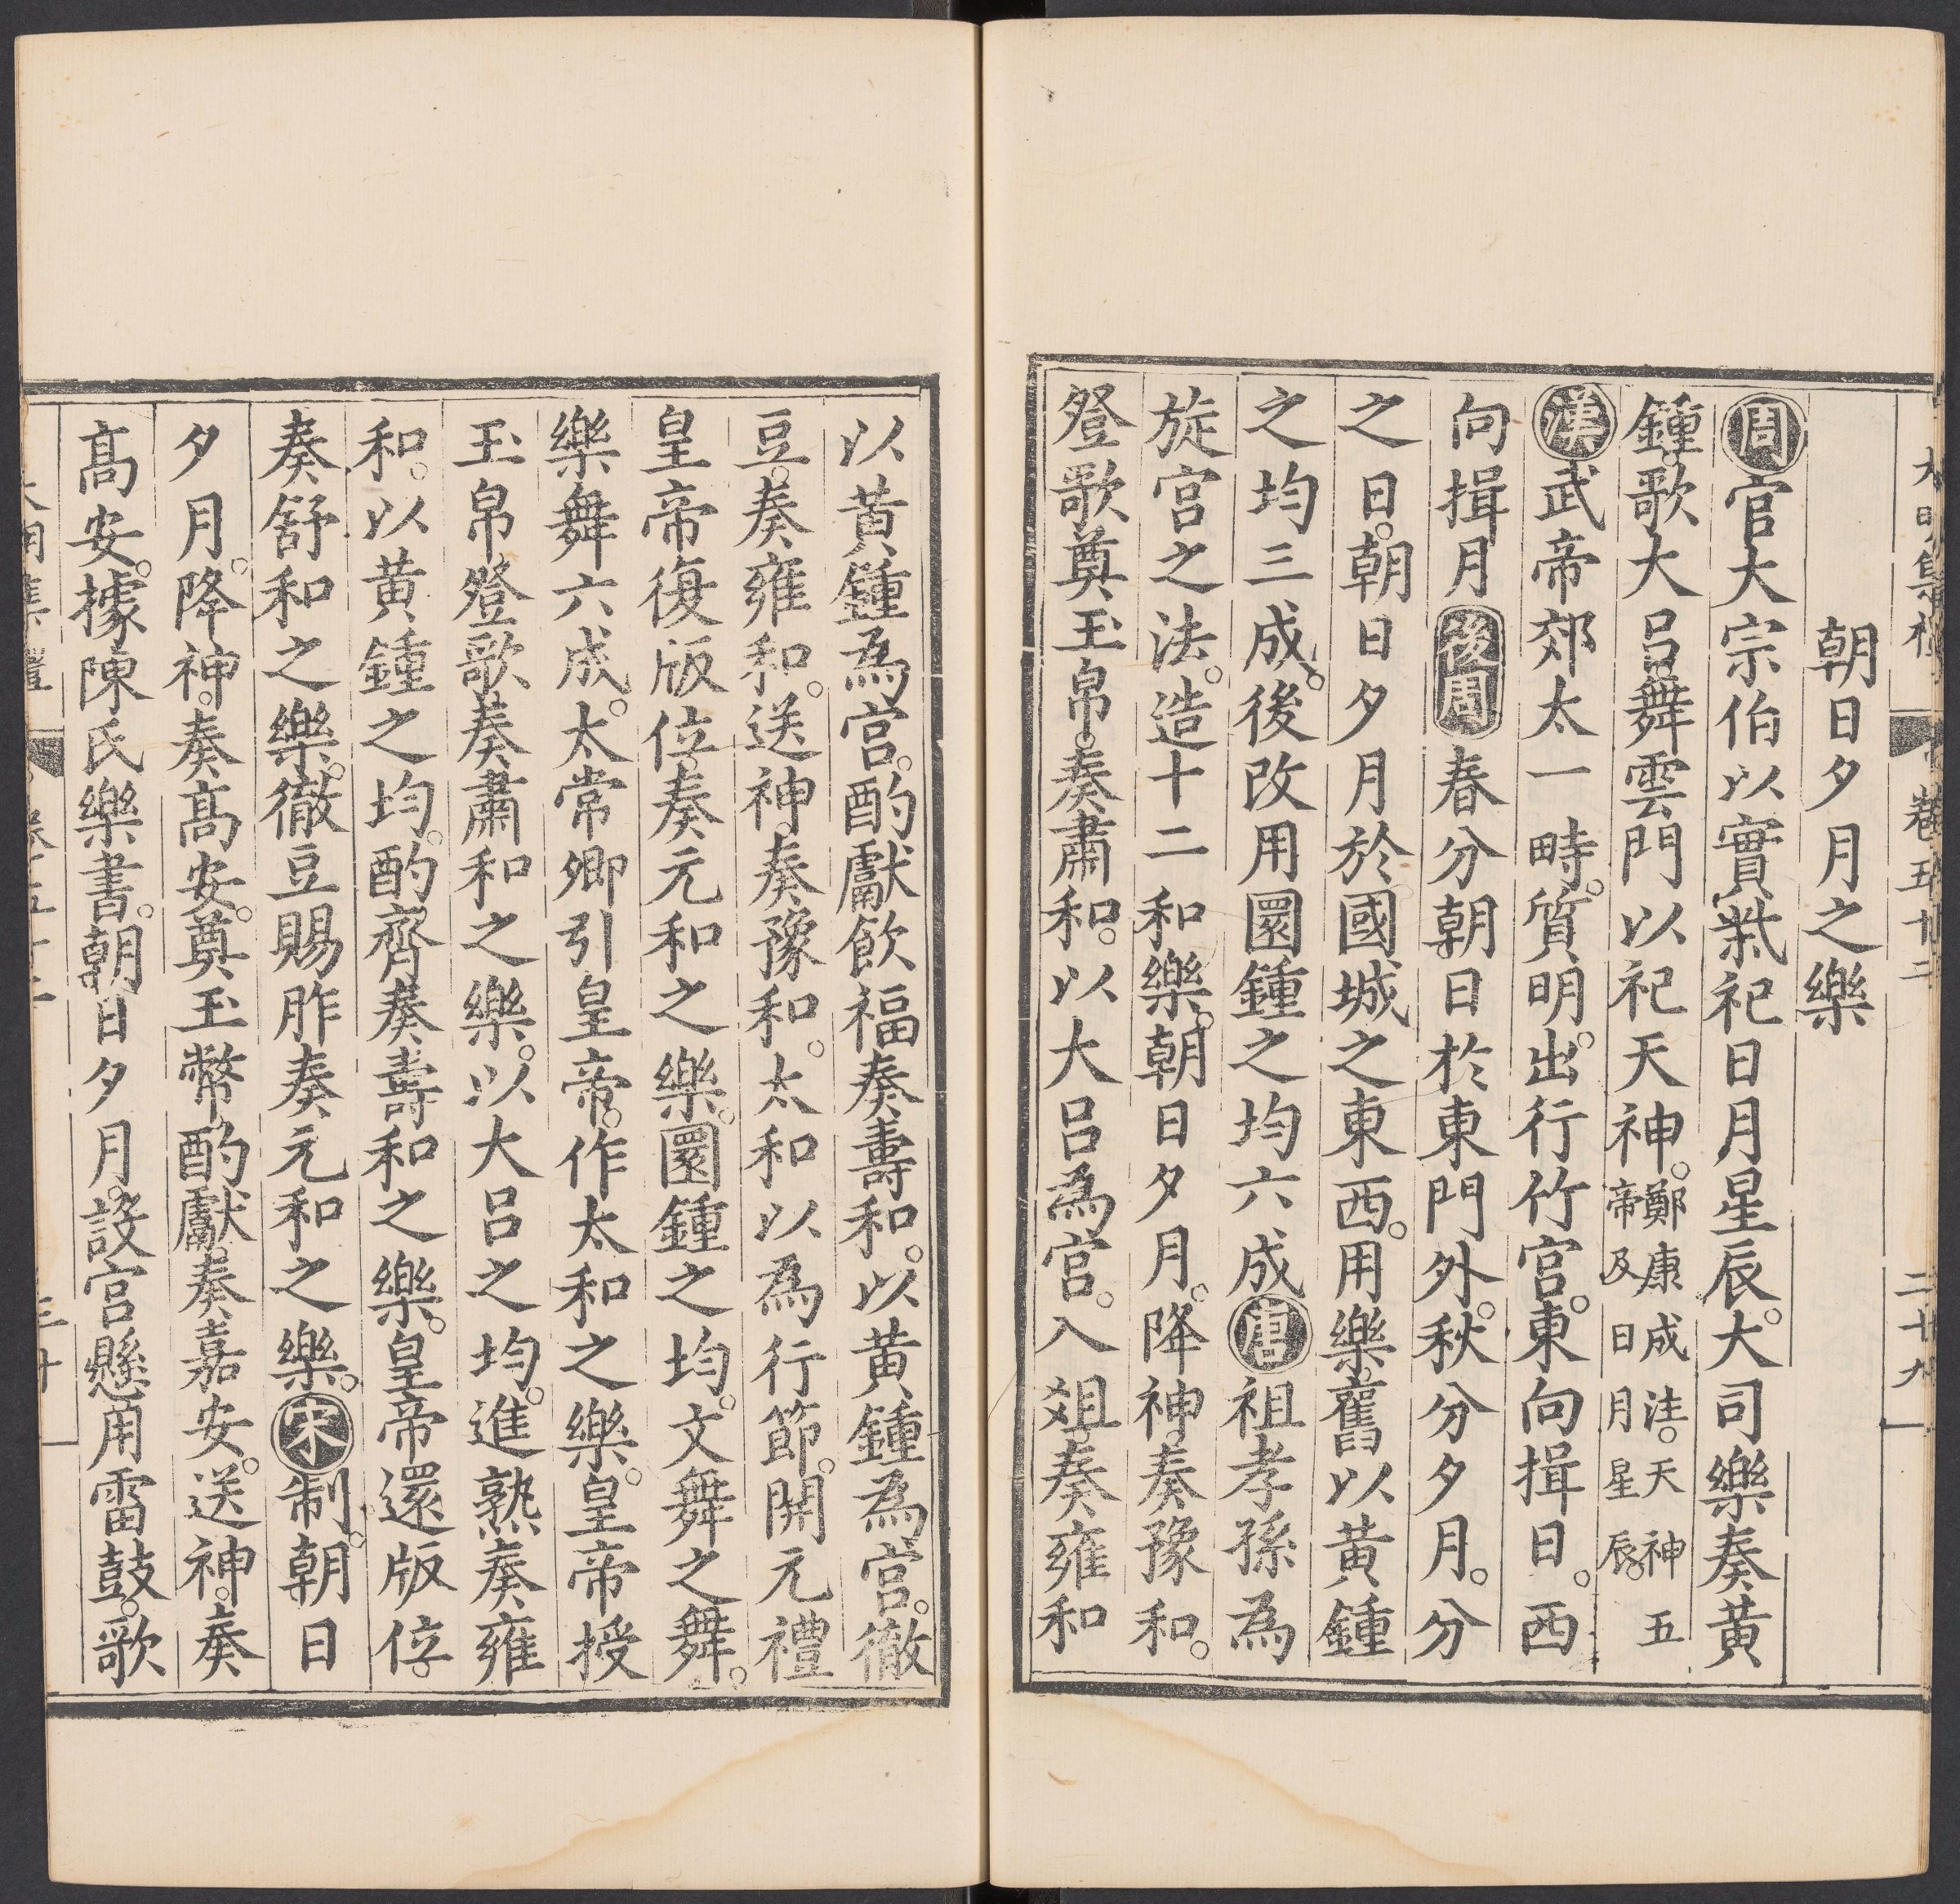 大明集禮 卷五十二 二十九
朝日夕月之樂
周官大宗伯以實柴祀日月星辰。大司樂奏黃
鍾。歌大呂。舞雲門以祀天神。鄭康成注。天神五帝及日月星辰。
漢武帝郊太一畤。質明。出行竹宮。東向揖日。西
向揖月後周春分朝日於東門外。秋分夕月。分
之日。朝日夕月於國城之東西。用樂。舊以黃鍾
之均三成。後改用圜鍾之均六成唐祖孝孫為
旋宮之法。造十二和樂。朝日夕月。降神。奏豫和。
登歌奠玉帛。奏肅和。以大呂為宮。入俎。奏雍和
以黃鍾為宮。酌獻飲福奏壽和。以黃鍾為宮。徹
豆。奏雍和。送神。奏豫和。太和以為行節。開元禮
皇帝復版位。奏元和之樂。圜鍾之均。文舞之舞。
樂舞六成。太常卿引皇帝。作太和之樂。皇帝授
玉帛登歌奏肅和之樂。以大呂之均。進熟奏雍
和。以黃鍾之均。酌齊奏壽和之樂。皇帝還版位。
奏舒和之樂。徹豆賜胙奏元和之樂。宋制。朝日
夕月。降神。奏高安。奠玉幣酌獻。奏嘉安。送神。奏
高安。據陳氏樂書。朝日夕月。設宮懸用雷鼓。歌
大明集禮 卷五十二 三十